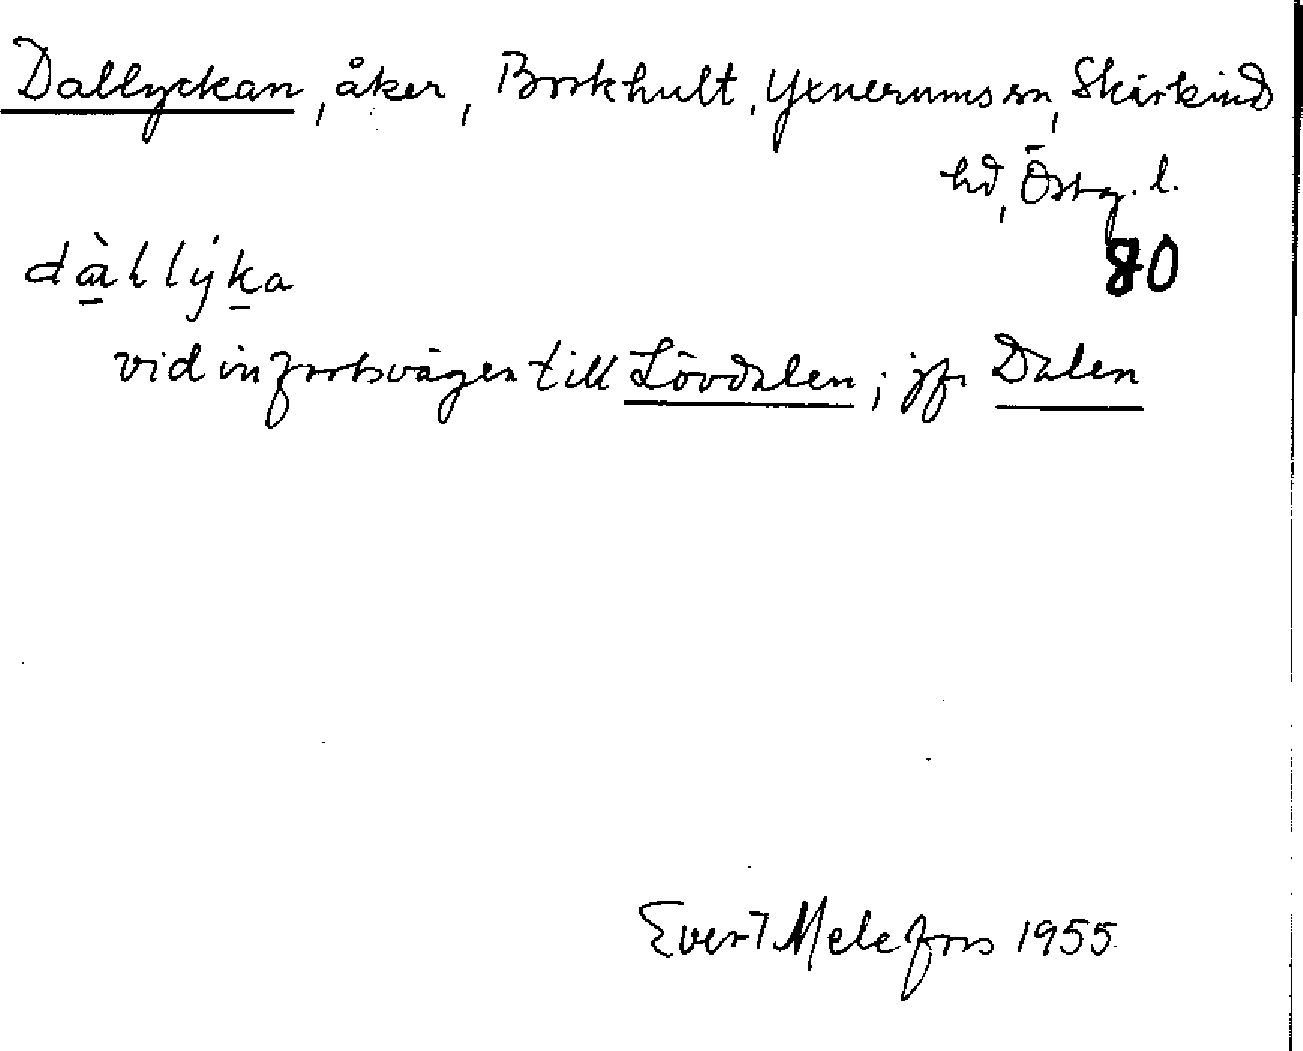 Dallyckan, åker, Borkhult, Yxnerums sn, Skärkind
hd, Östg. l.
80
dàl lýka
vid infartsvägen till Lövdalen; jfr Dalen
Evert Melefors 1955